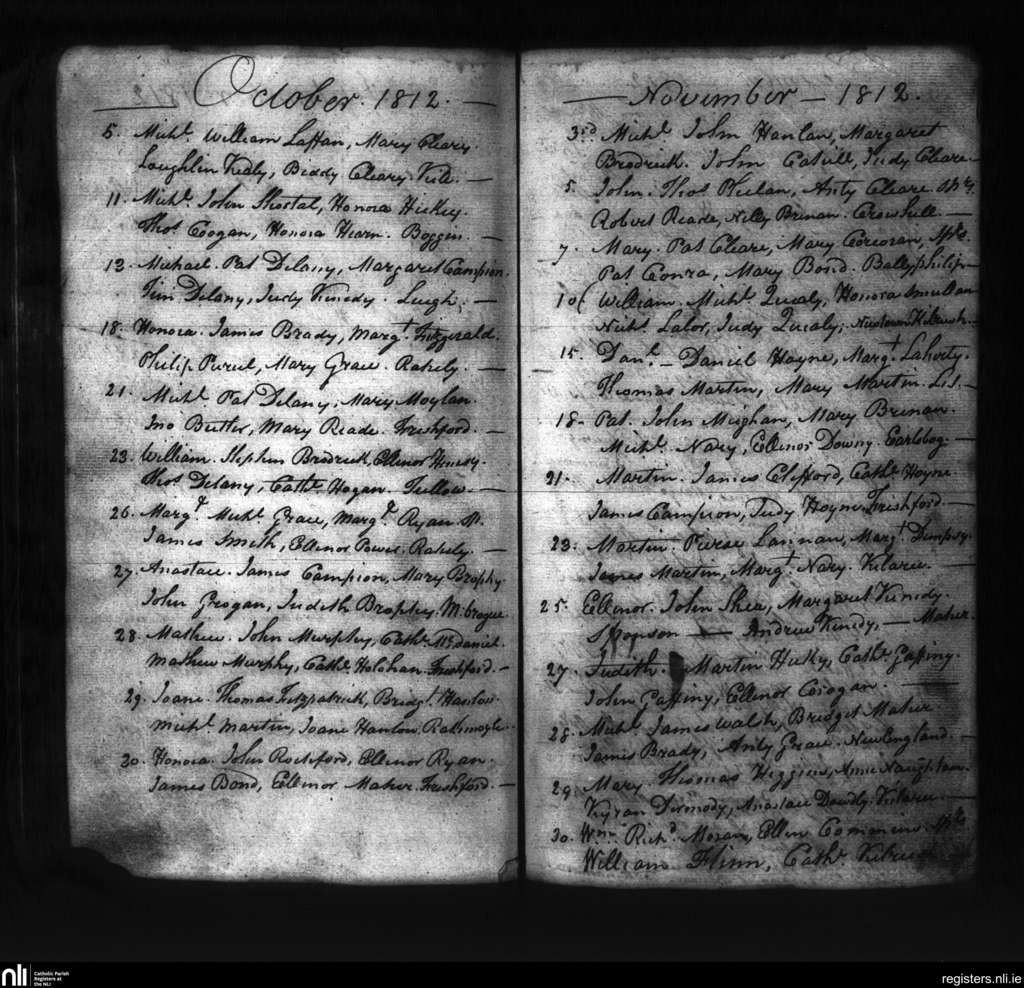 October. 1812.
5. Michl. William Laffan, Mary Cleary.
Laughlin Kealy, Biddy Cleary.
11. Michl. John Shortal, Honora Hickey.
Thos Coogan, Honora Hearn. Boggin.
12. Michael. Pat Delany, Margaret Campion.
Tim Delany, Judy Kinedy. Lugh.
18. Honora. James Brady, Margt. Fitzgerald.
Philip Purcel, Mary Grace. Rakely.
21. Michl. Pat Delany, Mary Moylan.
Jno Butler, Mary Reade. Freshford.
23. William. Stephen Brodrick, Ellenor Henesy.
Thos Delany, Cathe. Hogan. Tullow.
26. Margt. Michl. Grace, Margt. Ryan
James Smith, Ellenor Power. Rakely.
27. Anastace. James Campion, Mary Brophy.
John Grogan, Judith Brophy.
28. Mathew. John Murphy, Cathe. McDaniel.
Mathew Murphy, Cathe. Holohan. Freshford.
29. Joane. Thomas Fitzpatrick, Bridgt. Hanlow
Michl. Martin, Joane Hanlow. Rathmoyle.
30. Honora. John Rochford, Ellenor Ryan.
James Bond, Ellenor Maher. Freshford.
November 1812.
3rd Michl. John Hanlan, Margaret
Brodrick. John Cahill, Judy Cleare.
5. John. Thos Phelan, Anty Cleare.
Robert Reade, Nelly Brenan. Crowhill
7. Mary. Pat Cleare, Mary Corcoran,
Pat Conra, Mary Bond. Ballyphilip
10 William. Michl. Quealy, Honora
Michl. Lalor, Judy Quealy, Newtown Kilrush.
15. Danl. Daniel Hayne, Margt. Laherty.
Thomas Martin, Mary Martin. Lis.
18. Pat. John Mighan, Mary Brenan.
Michl. Nary, Ellenor Downy. Earlsbog
21. Martin. James Clifford, Cathe. Hoyne.
James Campion, Judy Hoyne. Freshford.
23. Martin. Pierse Lannan, Margt. Dempsy.
James Martin, Margt. Nary. Kilaree.
25. Ellenor. John Shea, Margaret Kinedy.
Andrew Kinedy, Maher.
27. Judith. Martin Hully, Cathe. Gaffiny.
John Gaffiny, Ellenor Crogan.
28. Michl. James Walsh, Bridget Maher.
James Brady, Anty Grace. New England.
29. Mary. Thomas Higgins, Anne Naughton.
Kyran Dermody, Anastace Dowdly. Kilaree.
30. Wm. Richd. Moran, Ellen
William Flinn, Cathe.
nli Catholic Parish
Registers at
the NLI
registers.nli.ie